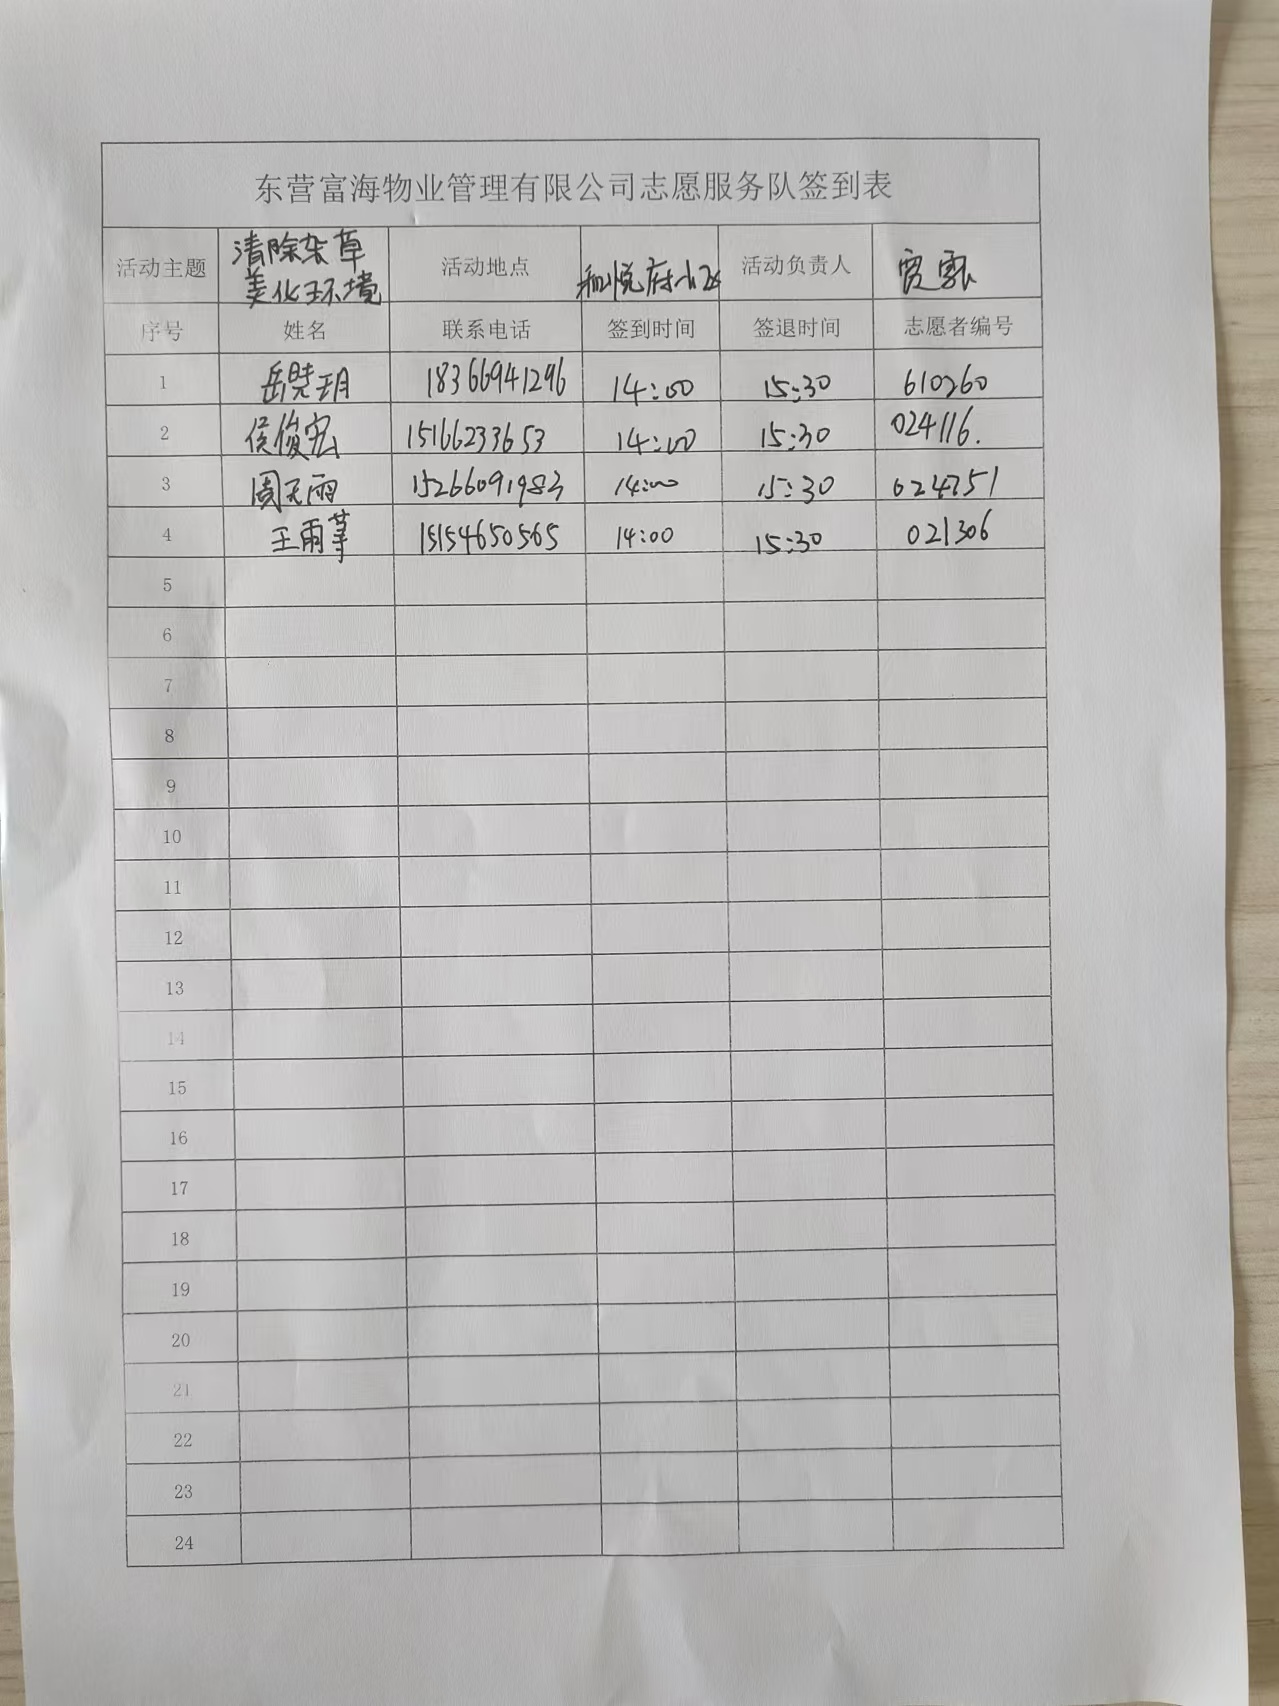 东营富海物业管理有限公司志愿服务队签到表
活动主题 清除杂草 美化环境 活动地点 和悦府小区 活动负责人 贾
序号 姓名 联系电话 签到时间 签退时间 志愿者编号
1 岳晓玥 18366941296 14:00 15:30 610260
2 侯俊宏 15166233653 14:00 15:30 024116.
3 周天雨 15266091983 14:00 15:30 024751
4 王雨菶 15154650565 14:00 15:30 021306
5
6
7
8
9
10
11
12
13
14
15
16
17
18
19
20
21
22
23
24